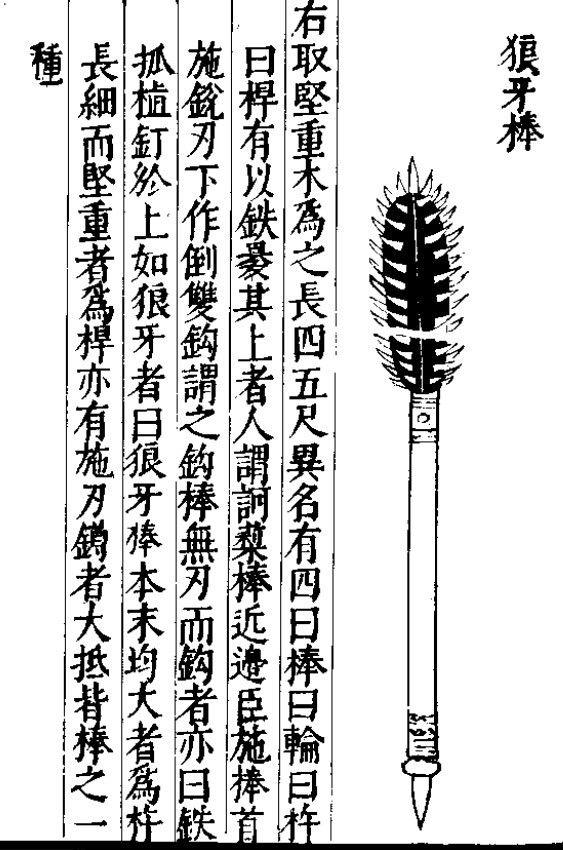 狼牙棒
右取堅重木爲之長四五尺異名有四曰棒曰輪曰杵
曰桿有以鉄裹其上者人謂訶藜棒近邊臣施棒首
施銳刃下作倒雙鈎謂之鈎棒無刃而鈎者亦曰鉄
抓植釘於上如狼牙者曰狼牙棒本末均大者爲杵
長細而堅重者爲桿亦有施刃鐏者大抵皆棒之一
種